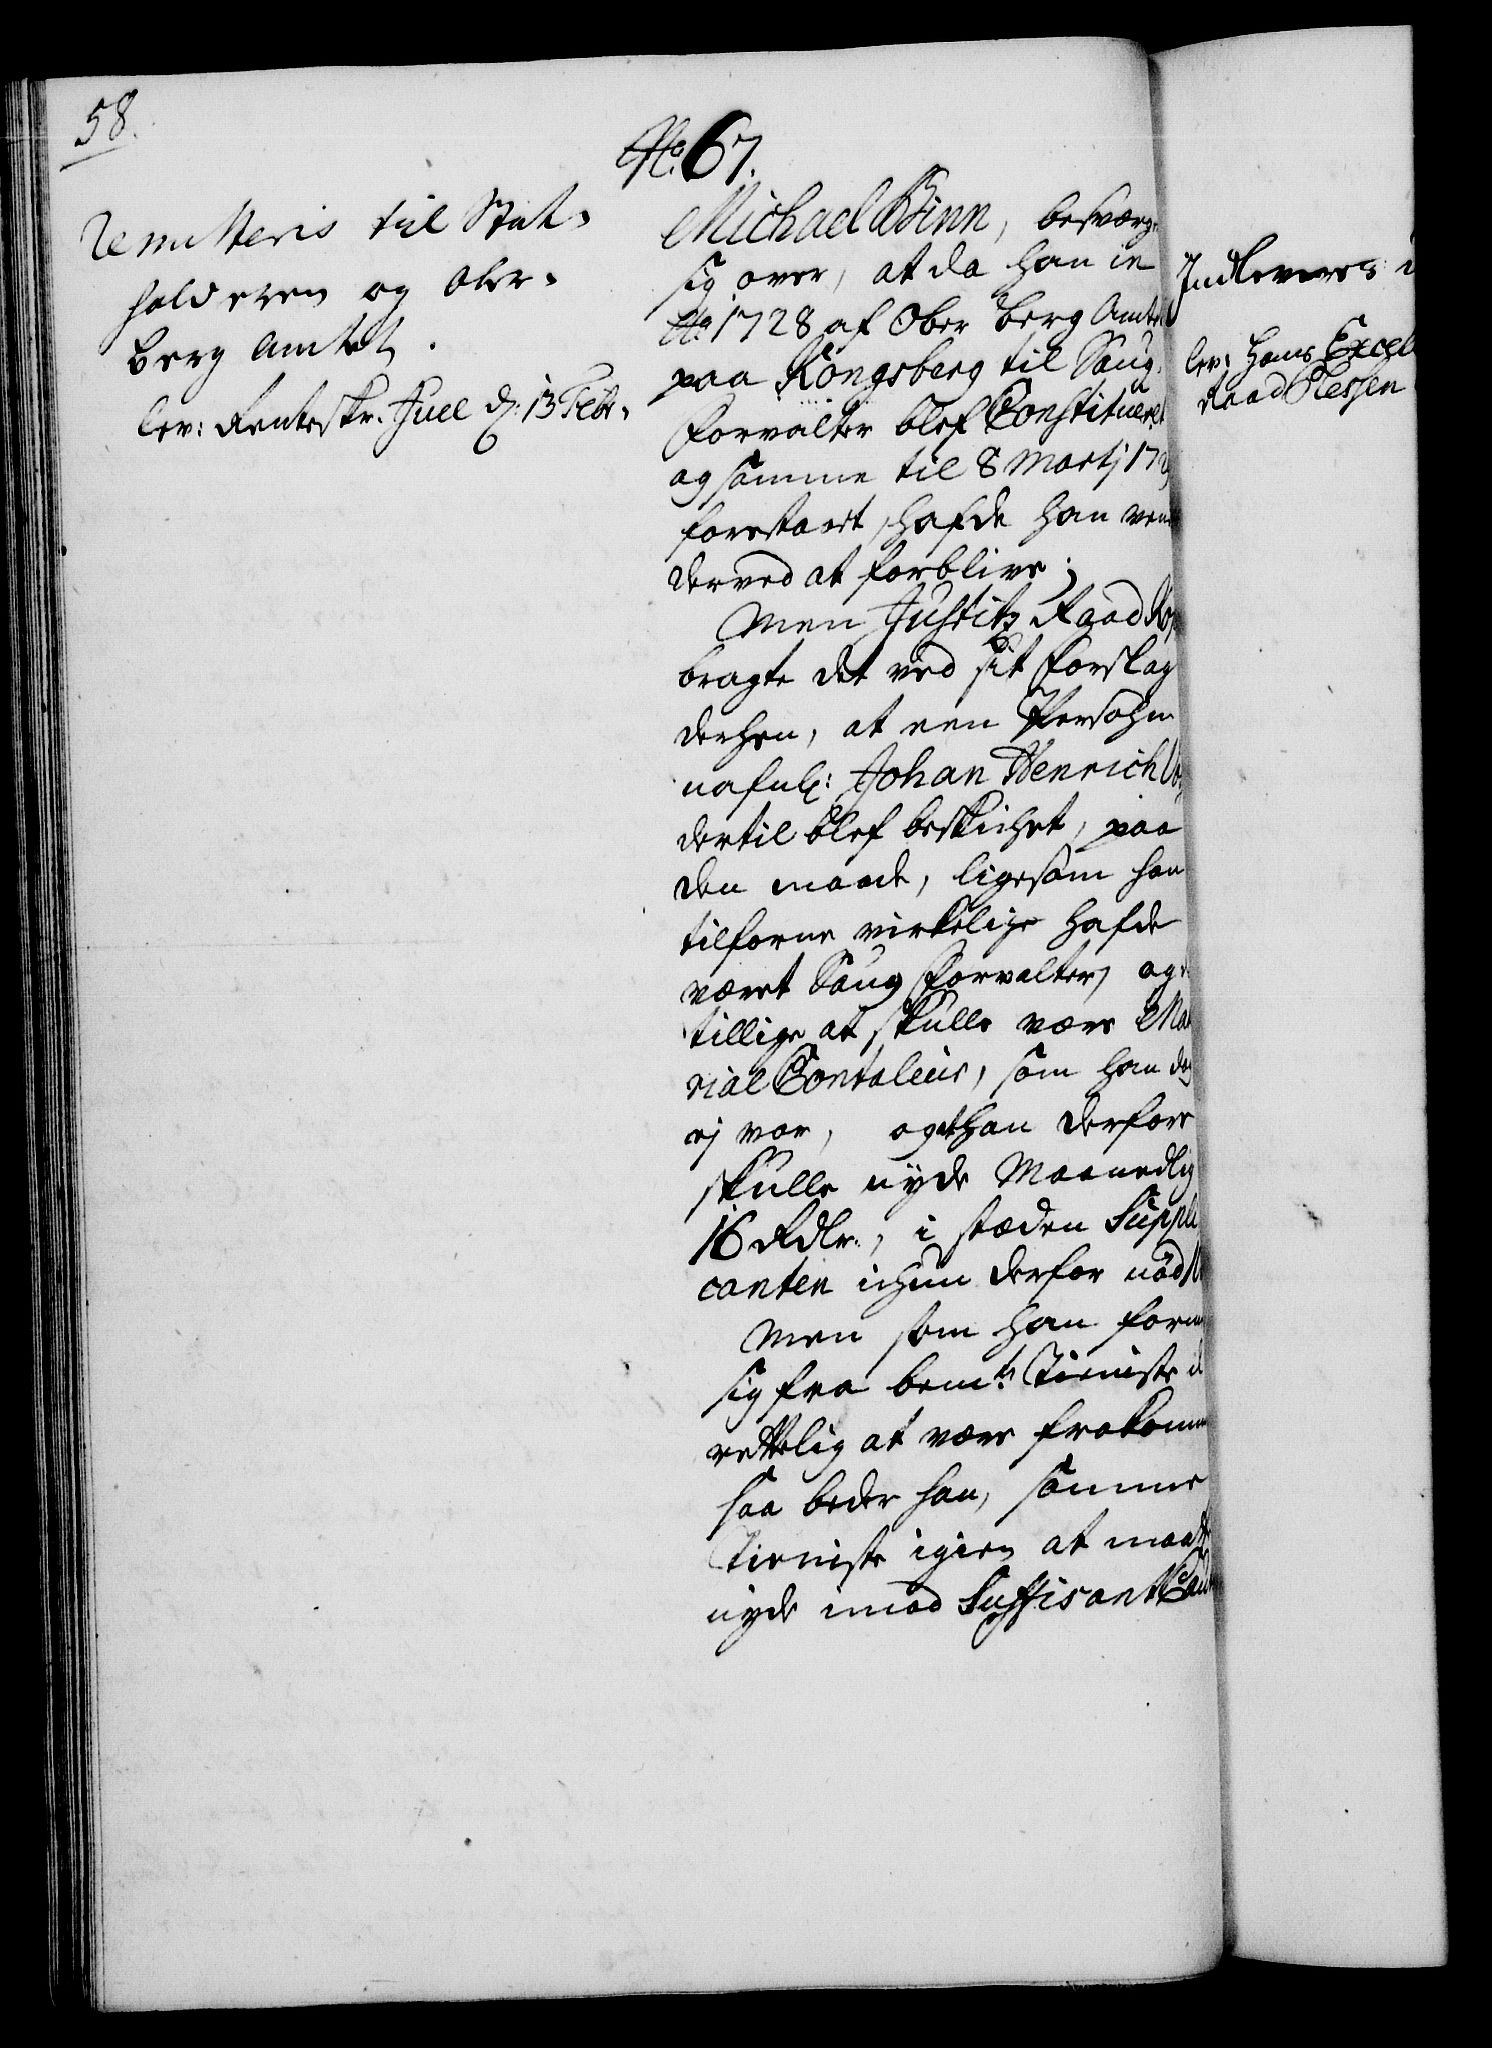 58.
No. 67.
Remitteris til Stat-
holderen og Ober-
berg Amtet.
lev: Renteskr. Juel d. 13 Febr.
Michael Binn, besværg.
sig over, at da han in
Ao. 1728 af Ober Berg Amtet
paa Kongsberg til Saug-
forvalter blef Constitueret
og samme til 8 Martj 172
forestaaet, hafde han vent
derved at forblive;
Men Justitz Raad
bragte det ved sit forslag
derhen, at een Persohn
nafnl: Johan Henrich
dertil blef beskichet, paa
den maade, ligesom han
tilforne virkelige hafde
været Saug forvalter, og
tillige at skulle være Mate
rial Contoleur, som han dog
ej var, og at han derfore
skulle nyde Maanedlig
16 Rdlr., i stæden Suppli
canten ichun derfor nød
Men som han formeen
sig fra bemte. Tieniste
rettelig at være frakommen
saa beder han, samme
Tieniste igien at maatte
nyde imod Suffisant Cau
Indleveres
lev: Hans Excell
Raad Plessen